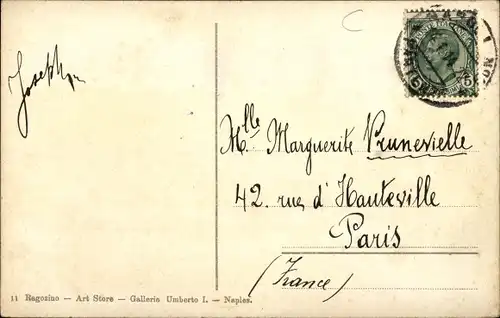 Joseph
Mlle Marguerite Prunevielle
42. rue d'Hauteville
Paris
(France)
11 Ragozino — Art Store — Galleria Umberto I. — Naples.